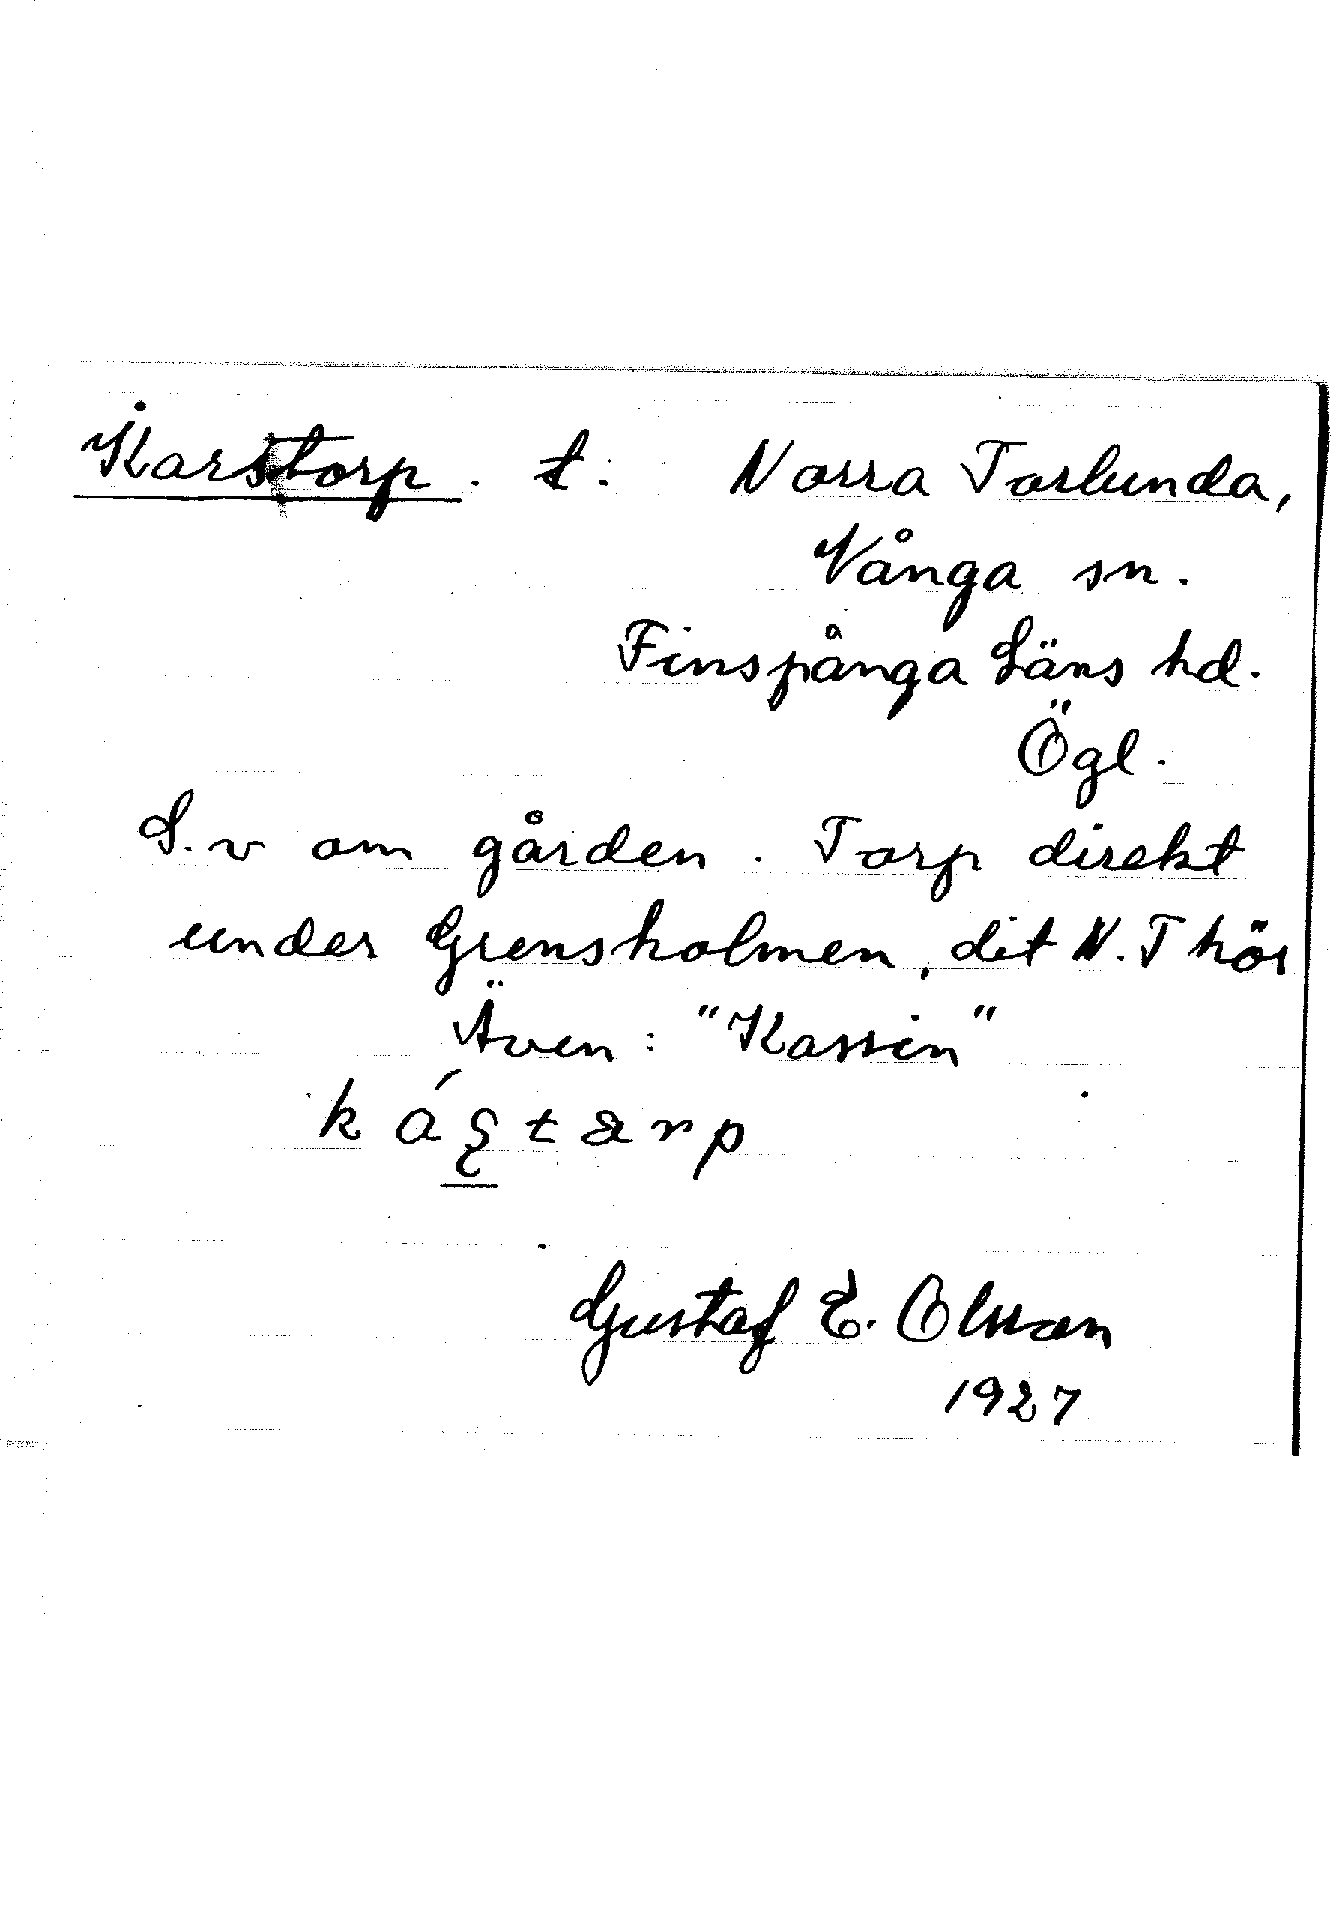 Karstorp. t. Norra Torlunda,
Vånga sn.
Finspånga Läns hd.
Ögl.
S.v om gården. Torp direkt
under Grensholmen, dit N.T hör
Även: "Kassin"
Gustaf E. Olsson
1927